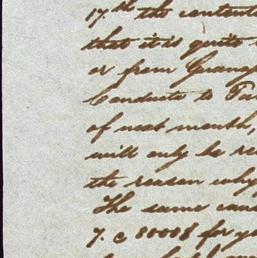 17th the content
that it is quite
or from Guay
Conducta to Ta
of next month,
will only be re
the reason why
The same cau
7. c 80008 for yo